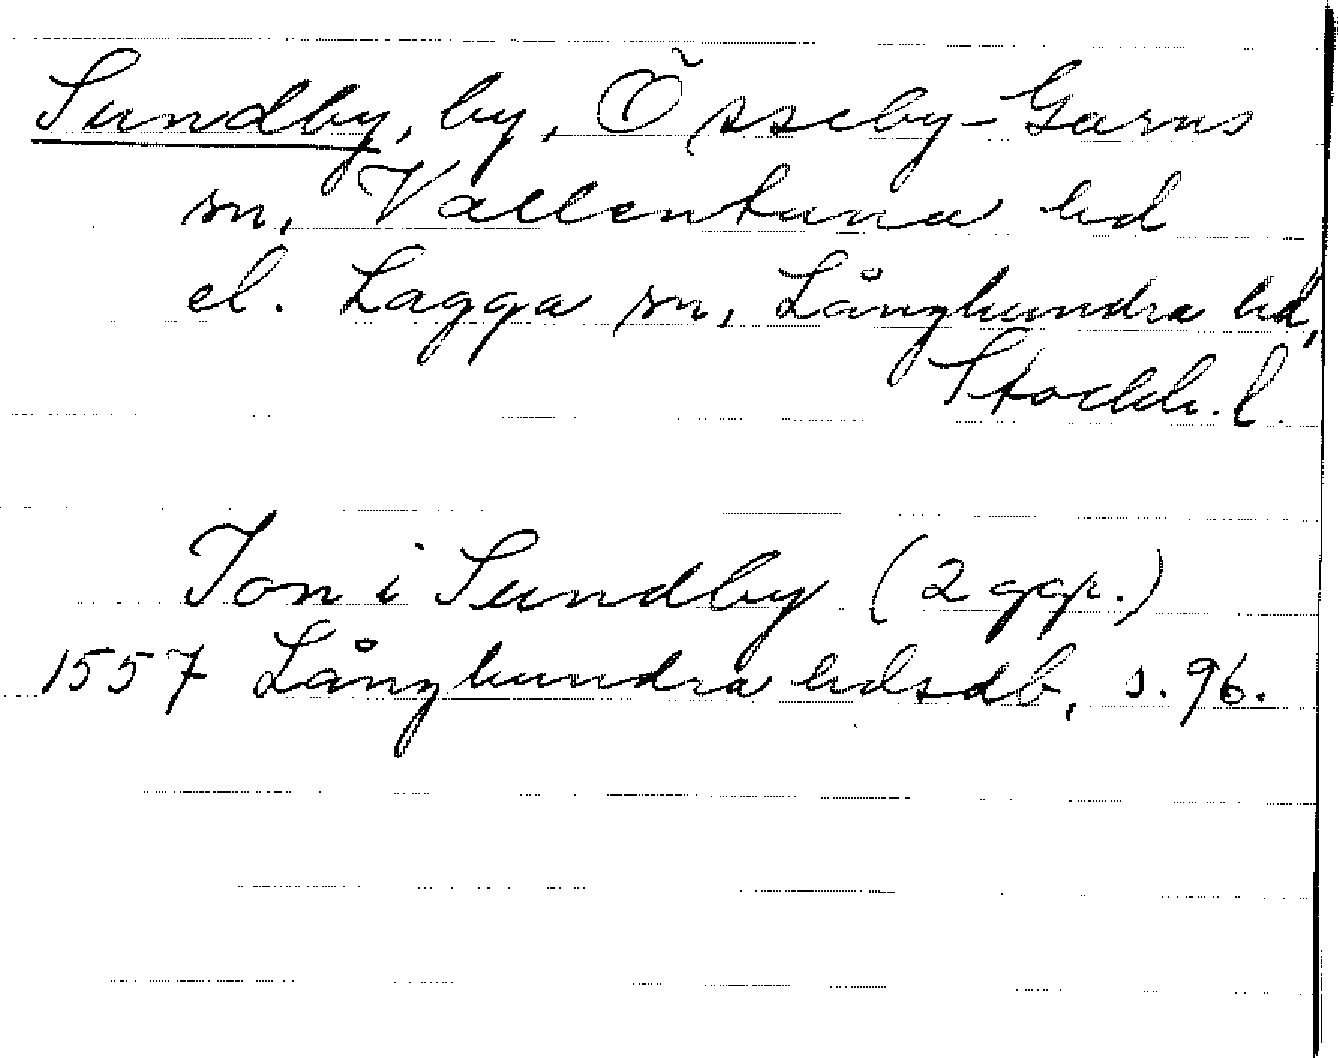 Sundby, by, Össeby-Garns
sn, Vallentuna hd
el. Lagga sn, Långhundra hd,
Stockh. l.
Jon i Sundby (2 ggr.)
1557 Långhundra hdsdb, s. 96.